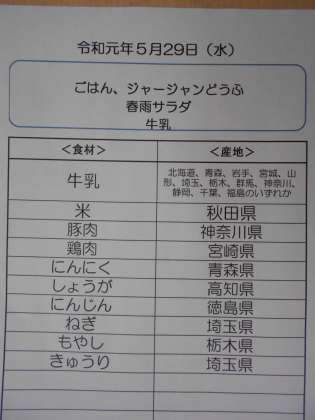 令和元年5月29日（水）
ごはん、ジャージャンどうふ
春雨サラダ
牛乳
＜食材＞ ＜産地＞
牛乳 北海道、青森、岩手、宮城、山
形、埼玉、栃木、群馬、神奈川、
静岡、千葉、福島のいずれか
米 秋田県
豚肉 神奈川県
鶏肉 宮崎県
にんにく 青森県
しょうが 高知県
にんじん 徳島県
ねぎ 埼玉県
もやし 栃木県
きゅうり 埼玉県